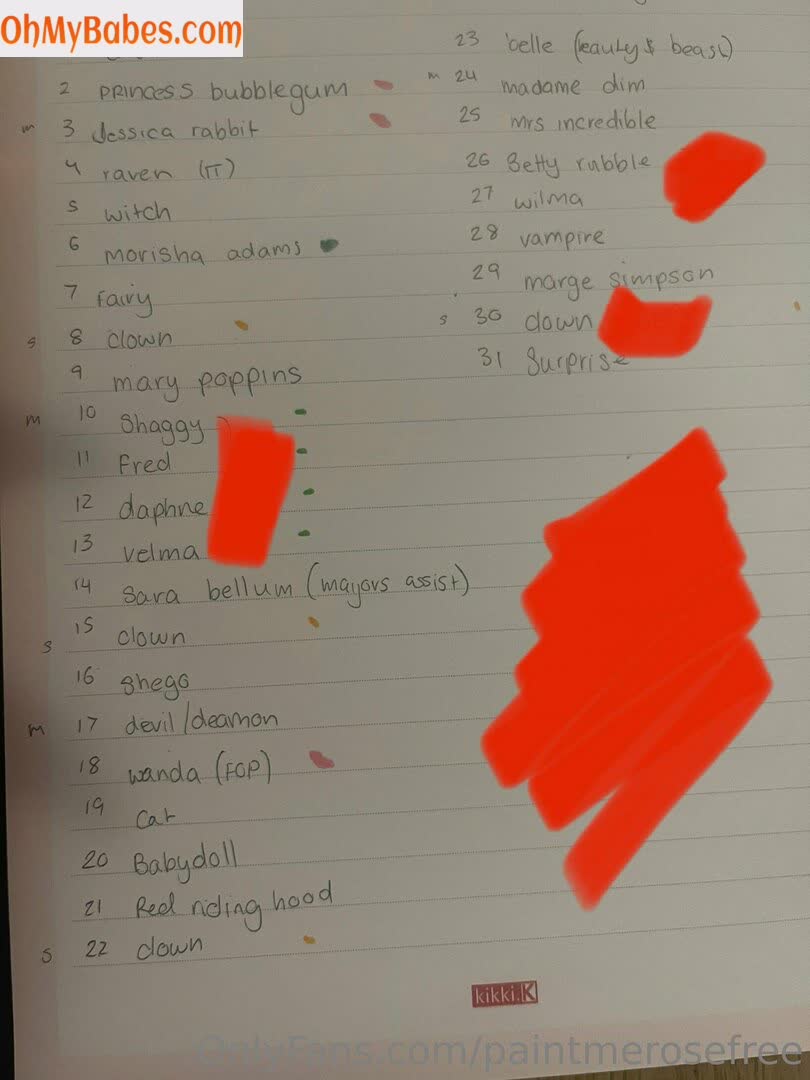 OhMyBabes.com
2 PRINCESS bubblegum
m 3 Jessica rabbit
4 raven (TT)
5 witch
6 morisha adams
7 Fairy
s 8 clown
9 mary poppins
m 10 Shaggy
11 Fred
12 daphne
13 velma
14 Sara bellum (mayors assist)
s 15 clown
16 shego
m 17 devil/deamon
18 wanda (FOP)
19 Cat
20 Babydoll
21 Red riding hood
s 22 clown
23 belle (beauty & beast)
m 24 madame dim
25 mrs incredible
26 Betty rubble
27 wilma
28 vampire
29 marge simpson
s 30 clown
31 Surprise
kikki.K
OnlyFans.com/paintmerosefree